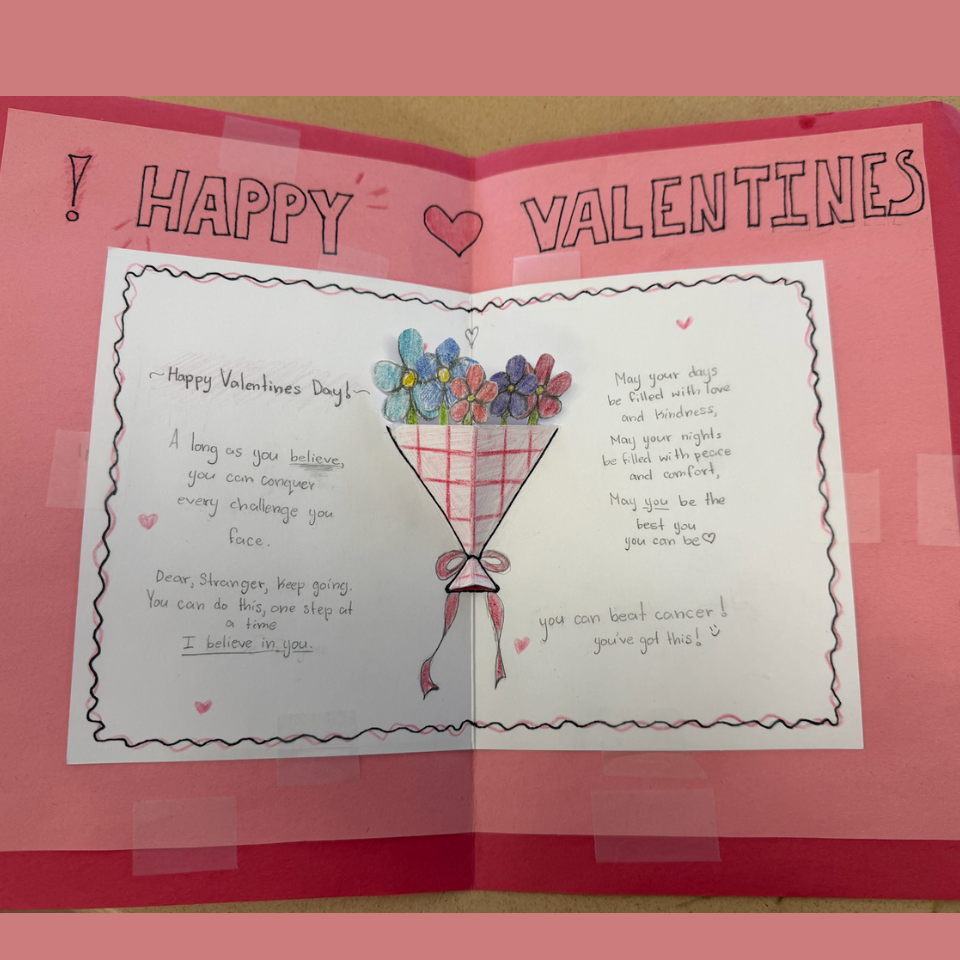 ! HAPPY ♥ VALENTINES
~Happy Valentines Day!~
A long as you believe,
you can conquer
every challenge you
face.
Dear, Stranger, keep going.
You can do this, one step at
a time
I believe in you.
May your days
be filled with love
and kindness,
May your nights
be filled with peace
and comfort,
May you be the
best you
you can be♡
you can beat cancer!
you've got this! :)